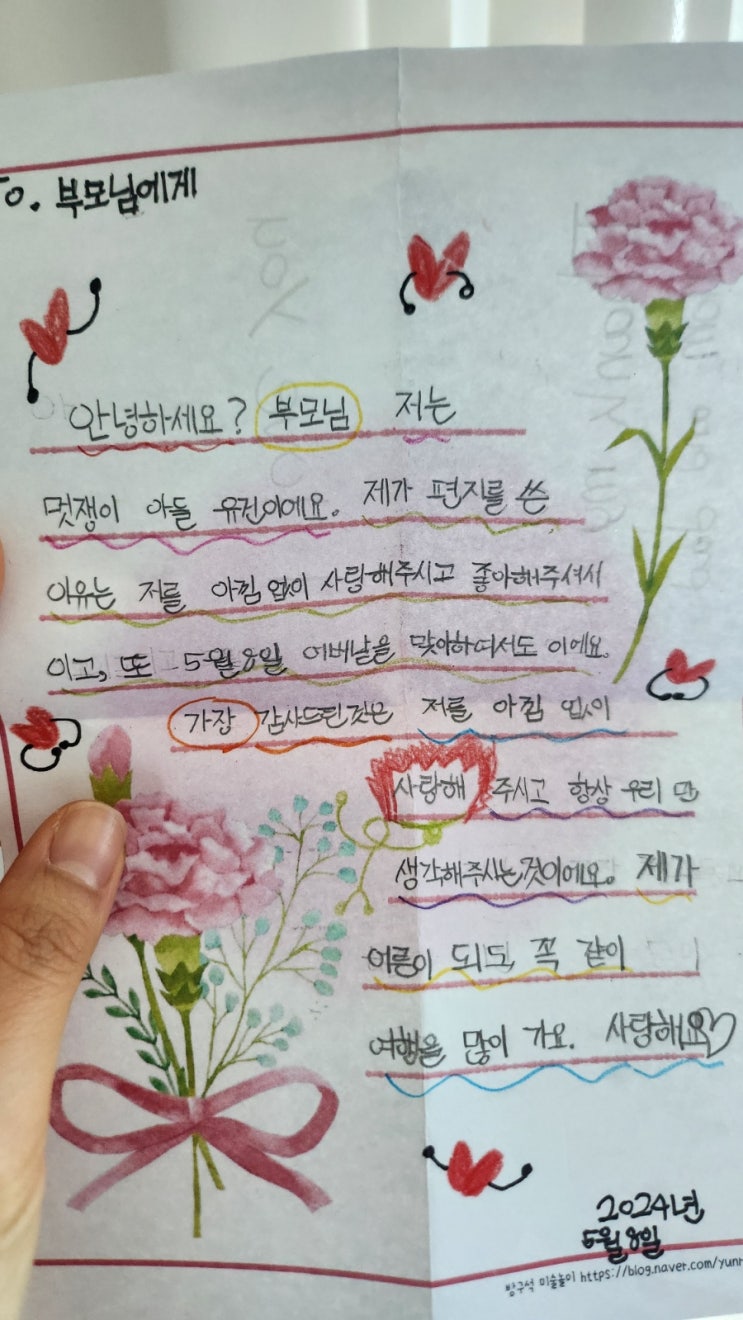 To. 부모님에게
안녕하세요? 부모님 저는
멋쟁이 아들 유건이에요. 제가 편지를 쓴
이유는 저를 아낌 없이 사랑해주시고 좋아해주셔서
이고, 또 5월 8일 어버날을 맞아하여서도 이에요.
가장 감사드린것은 저를 아낌 없이
사랑해 주시고 항상 우리 만
생각해주시는것이에요. 제가
어른이 되도 꼭 같이
여행을 많이 가요. 사랑해요♡
2024년
5월 8일
방구석 미술놀이 https://blog.naver.com/yunr